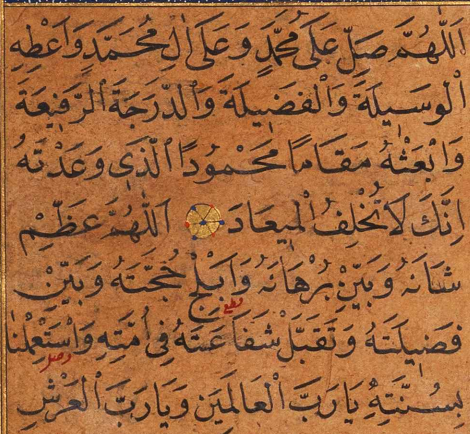 اَللّٰهُمَّ صَلِّ عَلٰى مُحَمَّدٍ وَعَلٰى اٰلِ مُحَمَّدٍ وَاَعْطِهِ
الْوَسِيلَةَ وَالْفَضِيلَةَ وَالدَّرَجَةَ الرَّفِيعَةَ
وَابْعَثْهُ مَقَامًا مَحْمُودًا الَّذِى وَعَدْتَهُ
اِنَّكَ لَا تُخْلِفُ الْمِيعَادَ اَللّٰهُمَّ عَظِّمْ
شَانَهُ وَبَيِّنْ بُرْهَانَهُ وَاَبْلِجْ حُجَّتَهُ وَبَيِّنْ
فَضِيلَتَهُ وَتَقَبَّلْ شَفَاعَتَهُ فِى اُمَّتِهِ وَاسْتَعْمِلْنَا
بِسُنَّتِهِ يَارَبَّ الْعَالَمِينَ وَيَارَبَّ الْعَرْشِ